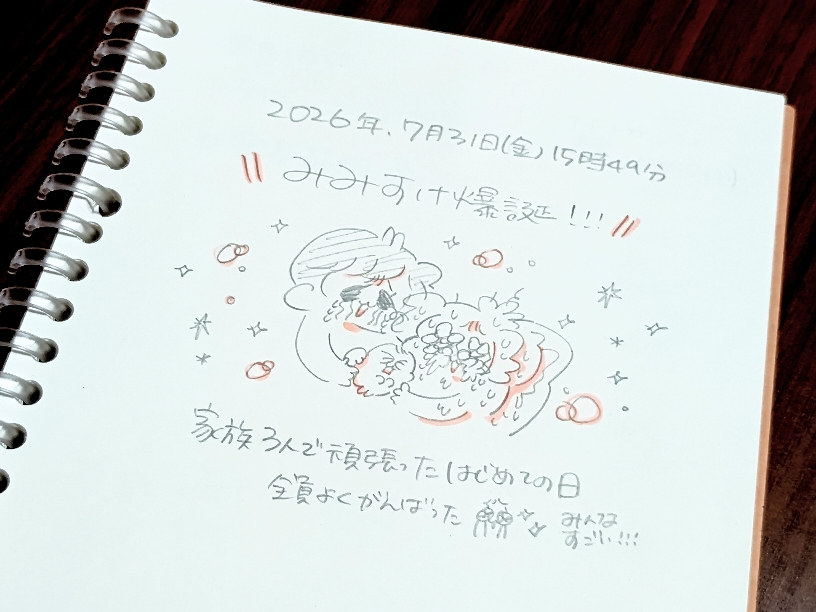 2026年、7月31日(金)15時49分
みみすけ爆誕!!!
家族3人で頑張ったはじめての日
全員よくがんばった
みんな
すごい!!!